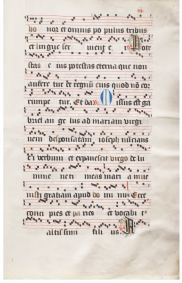 et omnes populus tribus
et lingue ser uient e
stas e ius potestas eterna que non
aufere tur et regnū eius quod nō co
rumpe tur Et dabit Missus est ga
briel an ge lus ad mariam virgo
nem desponsatam ioseph nūcians
ei verbum et expauescit virgo de lu
mine ne ti meas mari a inue
nisti gratiam apud do mi nū Ecce
conci pies et pa ries et vocabi t
altissimi fili us